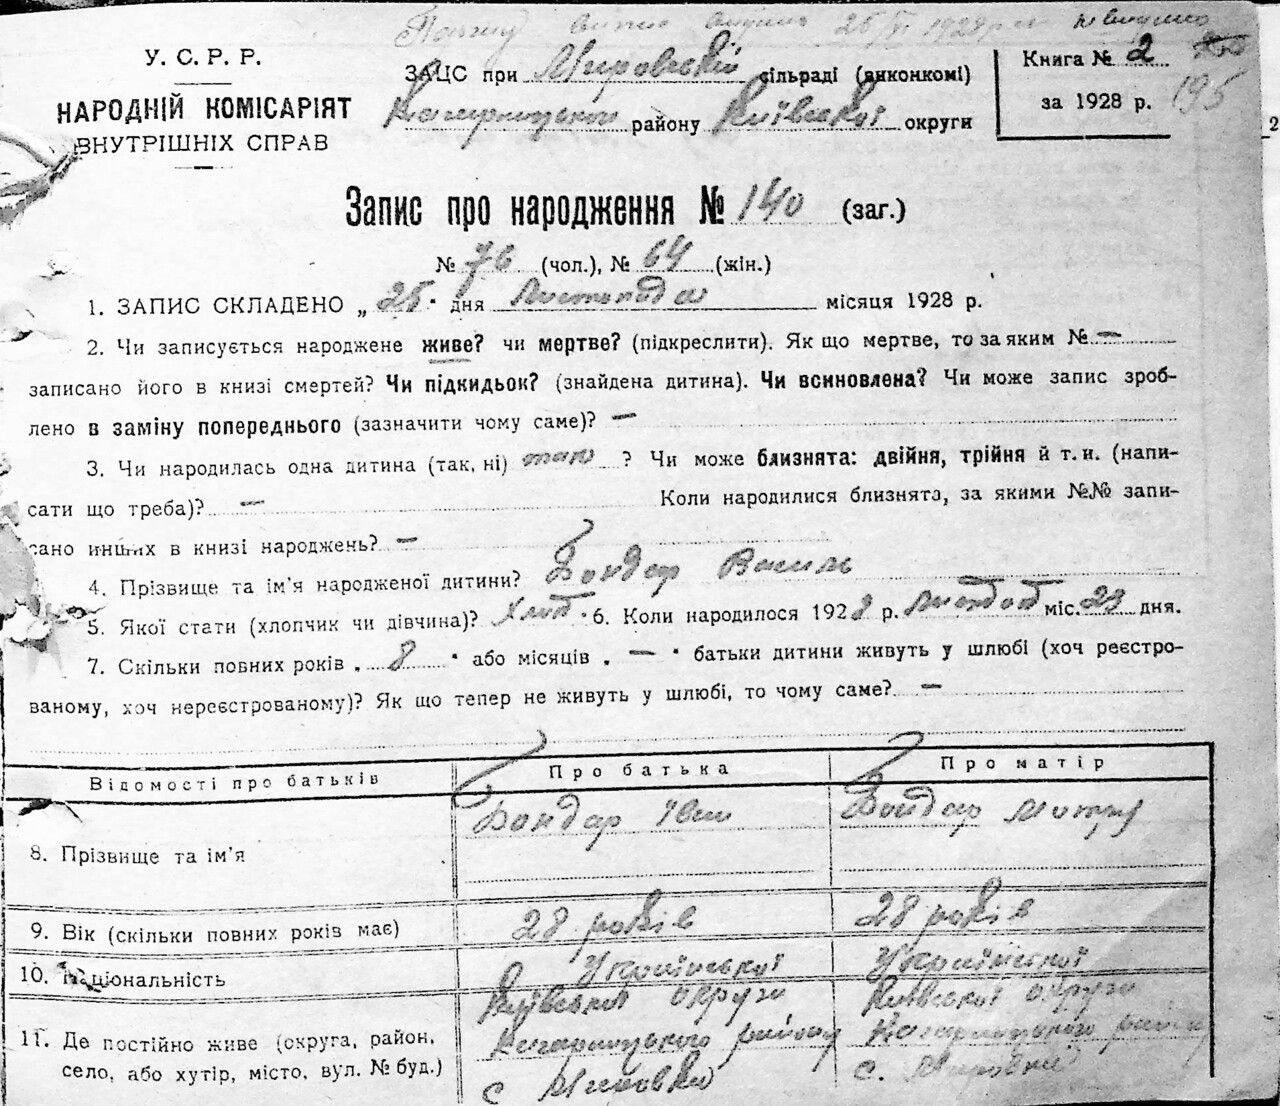 25/VI 1928 р.
У. С. Р. Р.
НАРОДНІЙ КОМІСАРІЯТ
ВНУТРІШНІХ СПРАВ
ЗАЦС при Мировській сільраді (виконкомі)
Кагарлицького району Київської округи
Книга № 2
за 1928 р. 195
2
Запис про народження № 140 (заг.)
№ 76 (чол.), № 64 (жін.)
1. ЗАПИС СКЛАДЕНО „ 25 " дня Листопада місяця 1928 р.
2. Чи записується народжене живе? чи мертве? (підкреслити). Як що мертве, то за яким № —
записано його в книзі смертей? Чи підкидьок? (знайдена дитина). Чи всиновлена? Чи може запис зроб-
лено в заміну попереднього (зазначити чому саме)? —
3. Чи народилась одна дитина (так, ні) так ? Чи може близнята: двійня, трійня й т. и. (напи-
сати що треба)? — Коли народилися близнята, за якими №№ запи-
сано инших в книзі народжень? —
4. Прізвище та ім'я народженої дитини? Бондар Василь
5. Якої стати (хлопчик чи дівчина)? Хлоп. 6. Коли народилося 1928 р. Листопад міс. 23 дня.
7. Скільки повних років „ 8 " або місяців „ — " батьки дитини живуть у шлюбі (хоч реєстро-
ваному, хоч нереєстрованому)? Як що тепер не живуть у шлюбі, то чому саме? —
Відомості про батьків Про батька Про матір
8. Прізвище та ім'я Бондар Іван Бондар
9. Вік (скільки повних років має) 28 років 28 років
10. Національність Української Української
11. Де постійно живе (округа, район,
село, або хутір, місто, вул. № буд.)
Київської округи
Кагарлицького району
с. Мировки
Київської округи
Кагарлицького району
с. Мировки